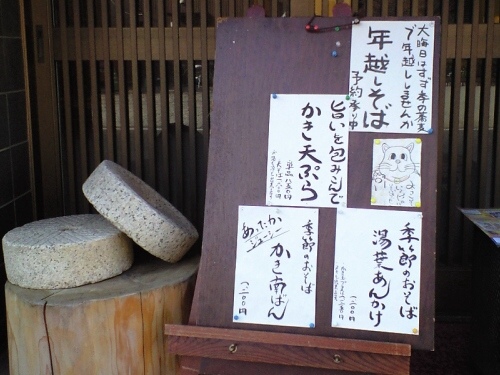 大晦日はすず季の蕎麦
で年越ししませんか
年越しそば
予約承り中
旨いを包みこんで
かき天ぷら
季節のおそば
湯葉あんかけ
一、二〇〇円
季節のおそば
あったか
ジューシー
かき南ばん
一、二〇〇円